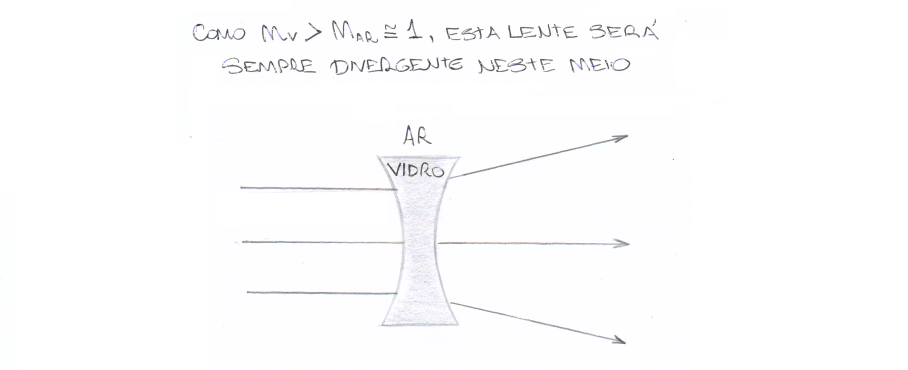 COMO MV > MAR ≅ 1, ESTA LENTE SERÁ
SEMPRE DIVERGENTE NESTE MEIO
AR
VIDRO